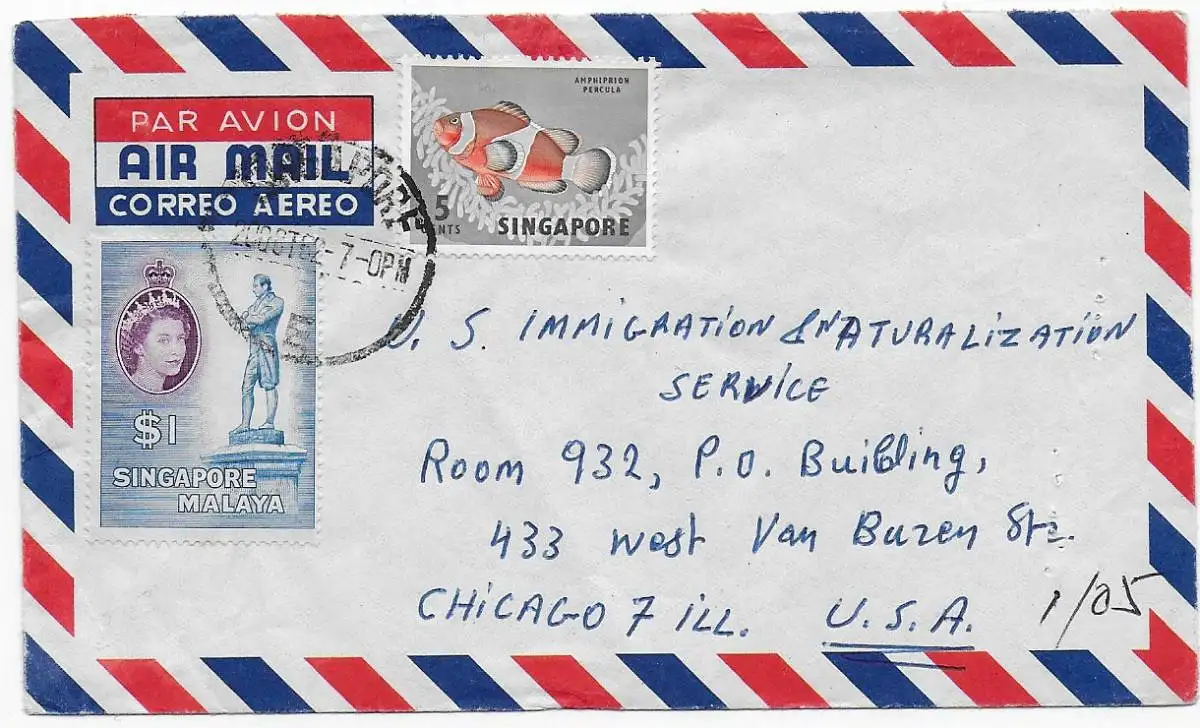 PAR AVION
AIR MAIL
CORREO AEREO
AMPHIPRION
PERCULA
5
CENTS
SINGAPORE
SINGAPORE
OCT 62 7-0PM
E
$1
SINGAPORE
MALAYA
U. S. IMMIGRATION & NATURALIZATION
SERVICE
Room 932, P.O. Building,
433 West Van Buren Str.
CHICAGO 7 ILL. U.S.A.
1/05